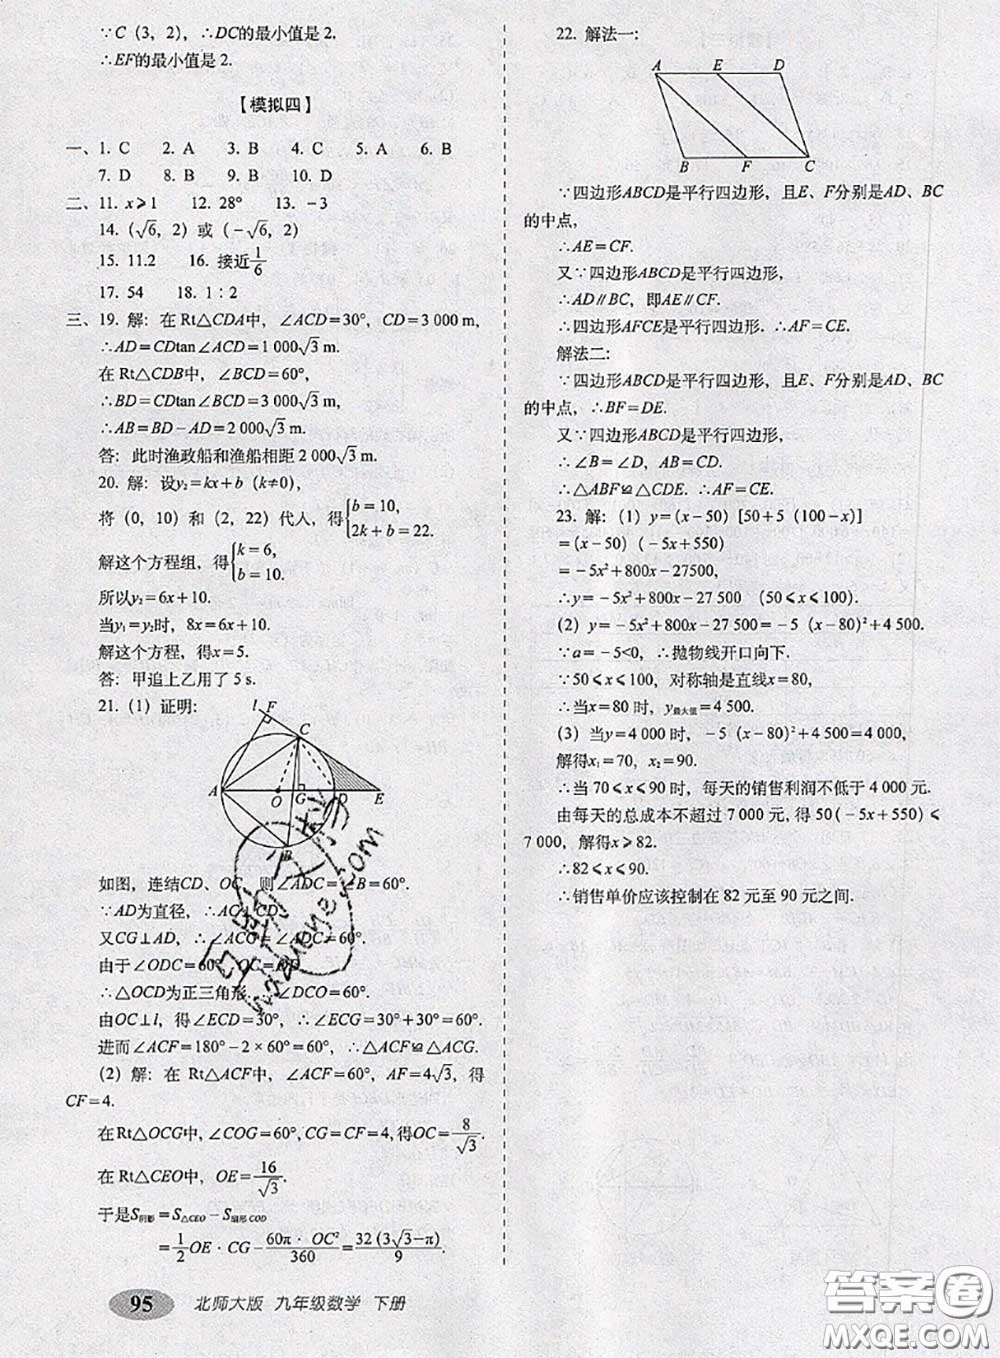 ∵C（3，2），∴DC的最小值是2.
∴EF的最小值是2.
【模拟四】
一、1. C 2. A 3. B 4. C 5. A 6. B
7. D 8. B 9. B 10. D
二、11. x⩾1 12. 28° 13. －3
14.（√6，2）或（－√6，2）
15. 11.2 16. 接近1/6
17. 54 18. 1∶2
三、19. 解：在 Rt△CDA中，∠ACD＝30°，CD＝3 000 m，
∴AD＝CDtan∠ACD＝1 000√3 m.
在 Rt△CDB中，∠BCD＝60°，
∴BD＝CDtan∠BCD＝3 000√3 m.
∴AB＝BD－AD＝2 000√3 m.
答：此时渔政船和渔船相距 2 000√3 m.
20. 解：设y₂＝kx＋b（k≠0），
将（0，10）和（2，22）代人，得{b＝10, 2k＋b＝22.
解这个方程组，得{k＝6, b＝10.
所以y₂＝6x＋10.
当y₁＝y₂时，8x＝6x＋10.
解这个方程，得x＝5.
答：甲追上乙用了 5 s.
21.（1）证明：
l F
C
A O G D E
B
如图，连结CD、OC，则∠ADC＝∠B＝60°.
∵AD为直径，∴AC⊥CD.
又CG⊥AD，∴∠ACG＝∠ADC＝60°.
由于∠ODC＝60°，OC＝OD
∴△OCD为正三角形，∠DCO＝60°.
由OC⊥l，得∠ECD＝30°，∴∠ECG＝30°＋30°＝60°.
进而∠ACF＝180°－2×60°＝60°，∴△ACF≌△ACG.
（2）解：在 Rt△ACF中，∠ACF＝60°，AF＝4√3，得
CF＝4.
在Rt△OCG中，∠COG＝60°，CG＝CF＝4，得OC＝8/√3.
在 Rt△CEO中，OE＝16/√3.
于是S阴影＝S△CEO－S扇形COD
＝1/2 OE·CG－60π·OC²/360＝32(3√3－π)/9.
95 北师大版 九年级数学 下册
22. 解法一：
A E D
B F C
∵四边形ABCD是平行四边形，且E、F分别是AD、BC
的中点，
∴AE＝CF.
又∵四边形ABCD是平行四边形，
∴AD∥BC，即AE∥CF.
∴四边形AFCE是平行四边形．∴AF＝CE.
解法二：
∵四边形ABCD是平行四边形，且E、F分别是AD、BC
的中点，∴BF＝DE.
又∵四边形ABCD是平行四边形，
∴∠B＝∠D，AB＝CD.
∴△ABF≌△CDE. ∴AF＝CE.
23. 解：（1）y＝(x－50)[50＋5（100－x)]
＝(x－50)（－5x＋550）
＝－5x²＋800x－27500，
∴y＝－5x²＋800x－27 500 （50⩽x⩽100）.
（2）y＝－5x²＋800x－27 500＝－5（x－80）²＋4 500.
∵a＝－5<0，∴抛物线开口向下.
∵50⩽x⩽100，对称轴是直线x＝80，
∴当x＝80 时，y最大值＝4 500.
（3）当y＝4 000 时，－5（x－80）²＋4 500＝4 000，
解得x₁＝70，x₂＝90.
∴当 70⩽x⩽90 时，每天的销售利润不低于 4 000 元.
由每天的总成本不超过 7 000 元，得 50(－5x＋550)⩽
7 000，解得x⩾82.
∴82⩽x⩽90.
∴销售单价应该控制在 82 元至 90 元之间.
答案圈
MXQE.COM